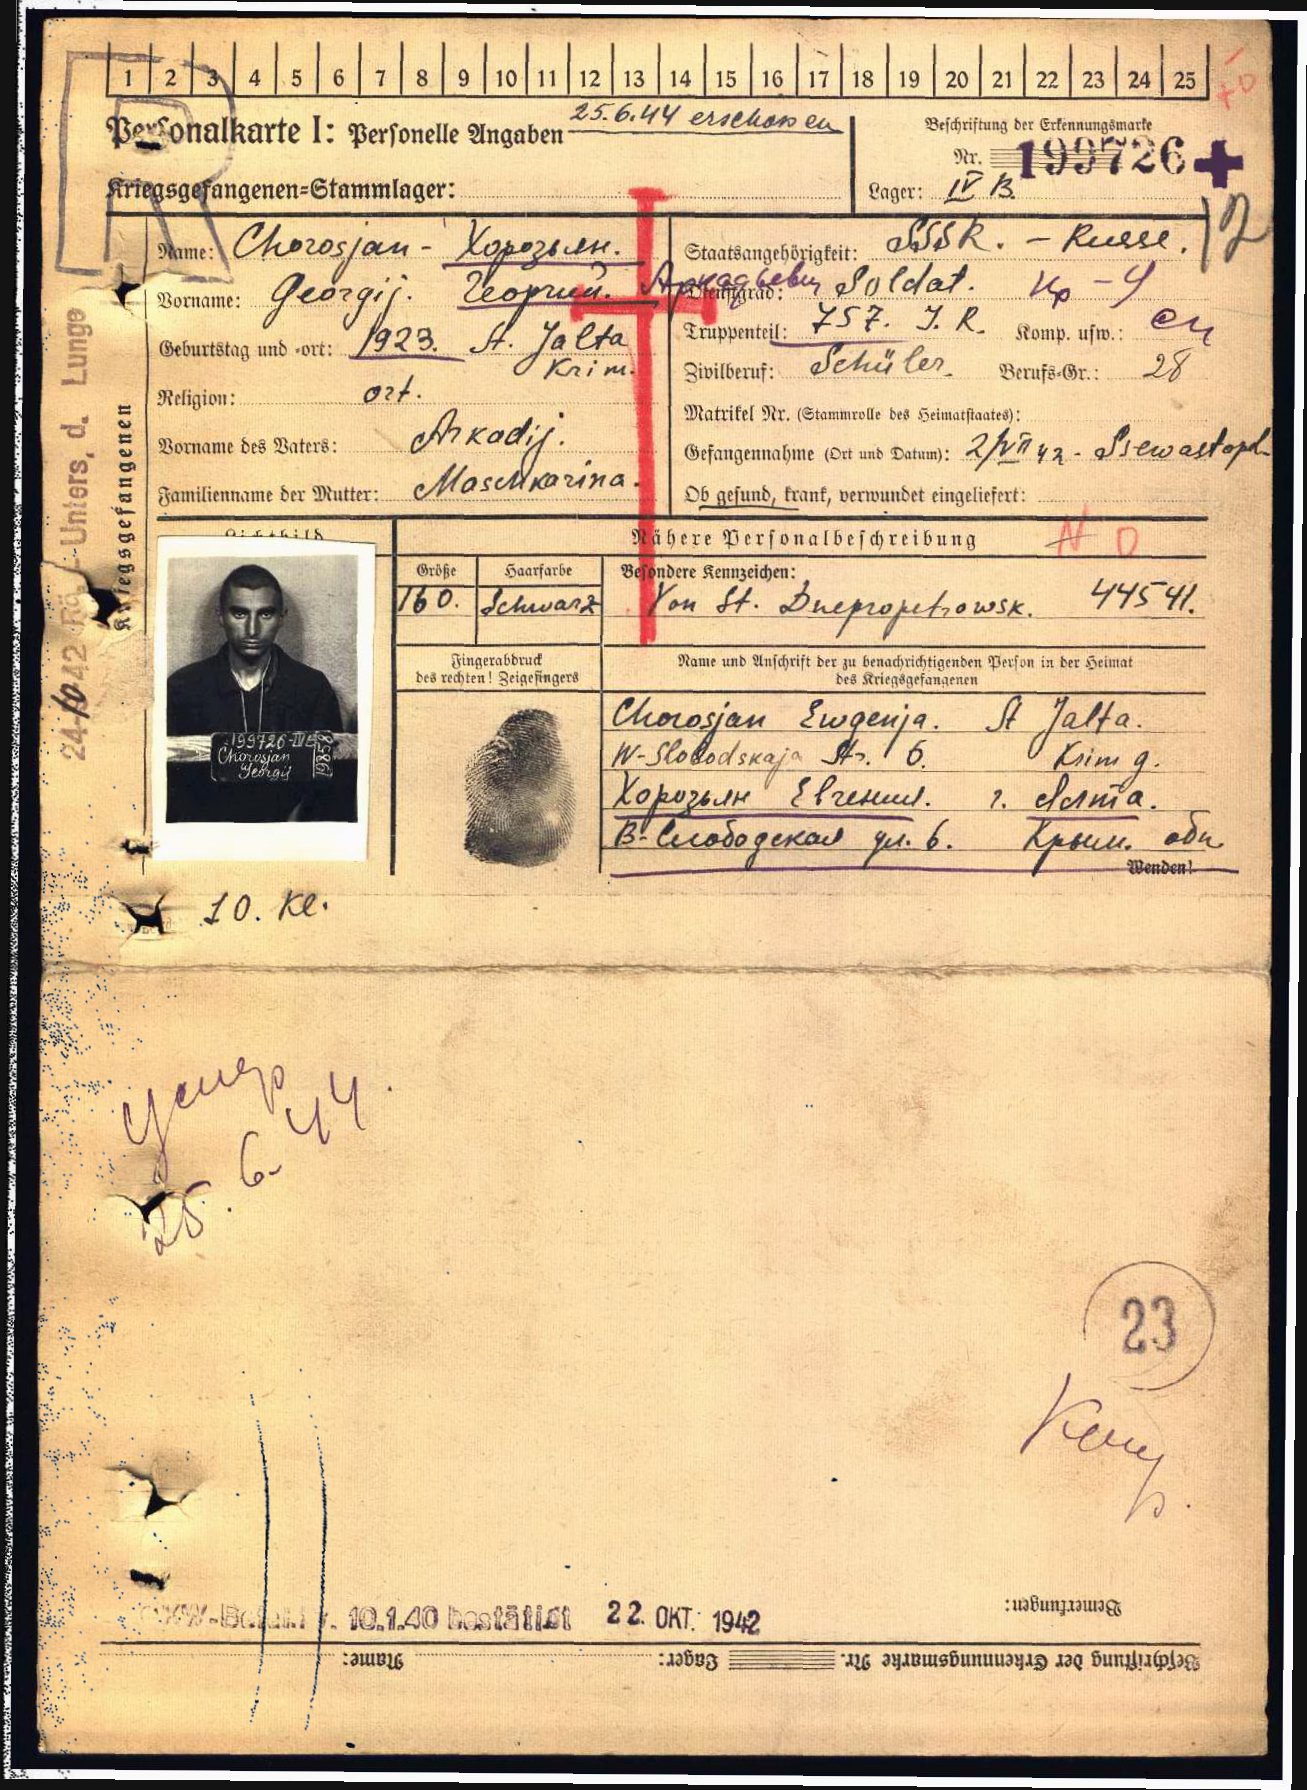 1 2 3 4 5 6 7 8 9 10 11 12 13 14 15 16 17 18 19 20 21 22 23 24 25
R
25.6.44 erschossen
Personalkarte I: Personelle Angaben
Kriegsgefangenen-Stammlager:
Beschriftung der Erkennungsmarke
Nr. 199726
Lager: IV B.
Name: Chorosjan - Хорозьян.
Vorname: Georgij. Георгий. Аркадьевич
Geburtstag und -ort: 1923. St. Jalta
Krim.
Religion: ort.
Vorname des Vaters: Arkadij.
Familienname der Mutter: Maschkarina.
Staatsangehörigkeit: SSSR. - Russe.
Dienstgrad: Soldat. Кр-ц
Truppenteil: 757. J. R. Komp. usw.: сп
Zivilberuf: Schüler. Berufs-Gr.: 28
Matrikel Nr. (Stammrolle des Heimatstaates):
Gefangennahme (Ort und Datum): 2/VII 42 - Ssewastopl
Ob gesund, krank, verwundet eingeliefert:
24/10 42 Rö.-Unters, d. Lunge
Kriegsgefangenen
Lichtbild
Nähere Personalbeschreibung
Größe Haarfarbe Besondere Kennzeichen:
160. Schwarz Von St. Dnepropetrowsk. 44541.
Fingerabdruck
des rechten! Zeigefingers
Name und Anschrift der zu benachrichtigenden Person in der Heimat
des Kriegsgefangenen
199726-IVB
Chorosjan
Georgij
Chorosjan Ewgenja. St Jalta.
W-Slobodskaja Str. 6. Krim g.
Хорозьян Евгения. г. Ялта.
В-Слободская ул. 6. Крым. обл
Wenden!
10. Kl.
Умер
25.6.44.
23
OKW-Befehl v. 10.1.40 bestätigt 22. OKT. 1942
Bemerkungen:
Beschriftung der Erkennungsmarke Nr. Lager: Name: